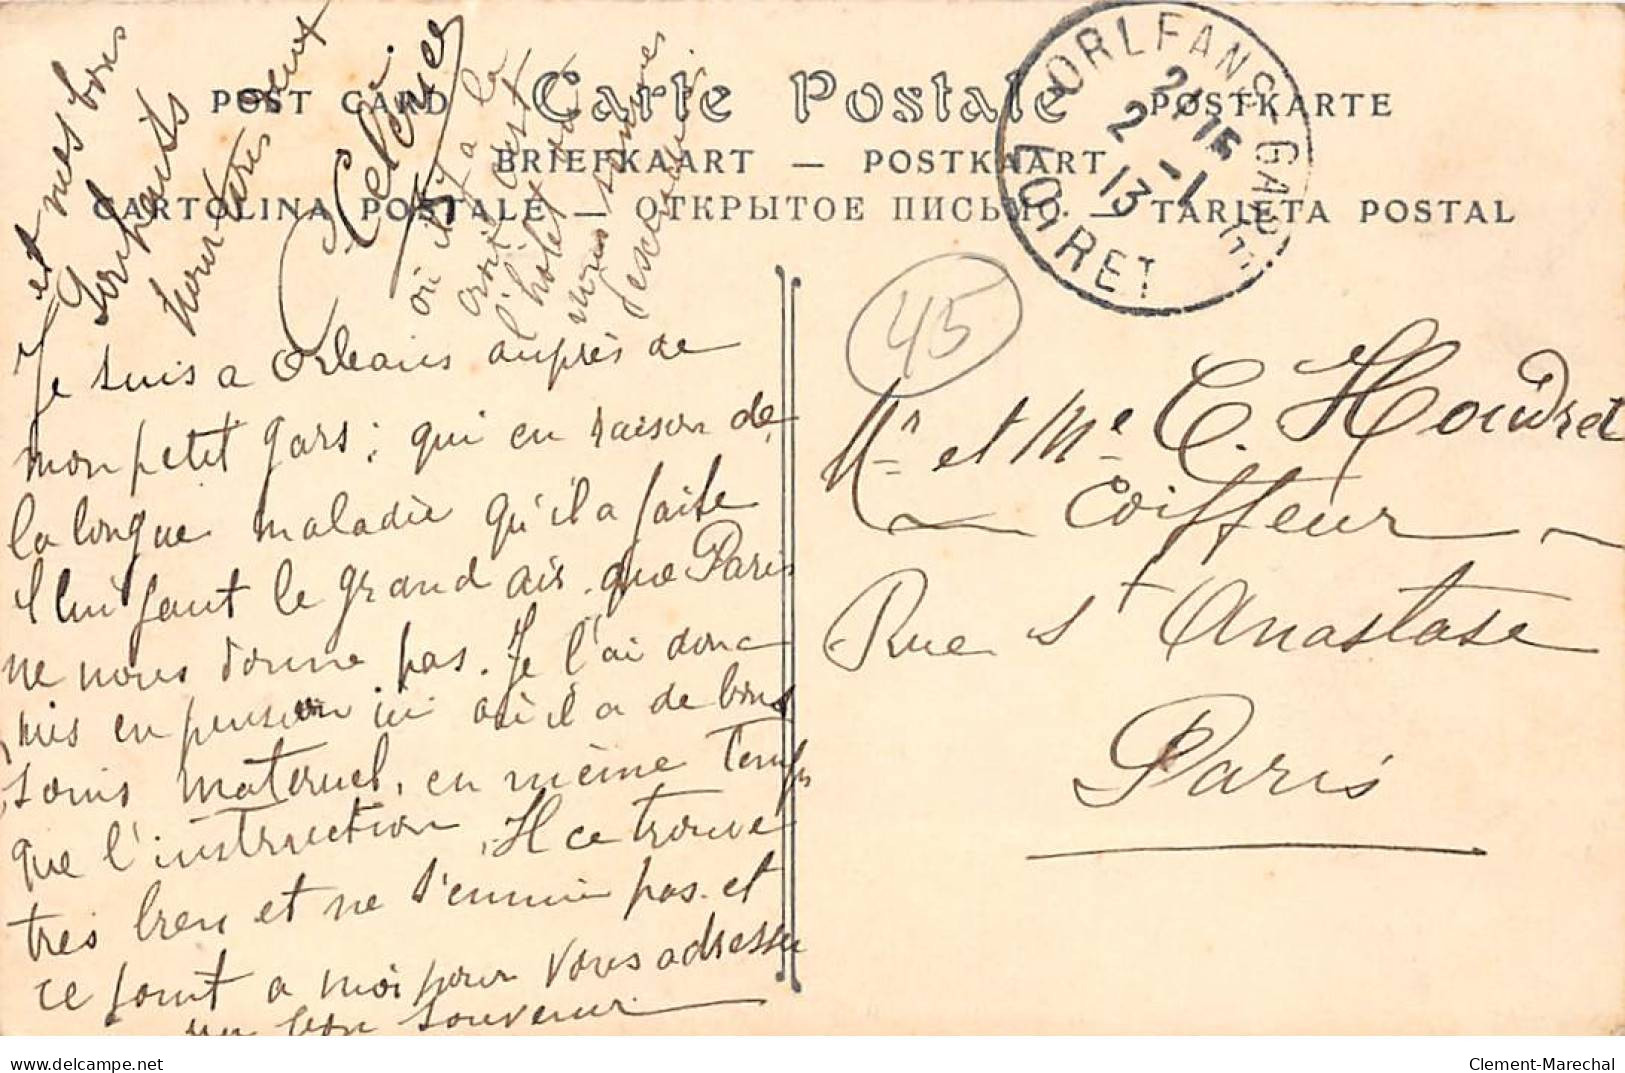 POST CARD Carte Postale POSTKARTE
BRIEFKAART — POSTKAART
CARTOLINA POSTALE — ОТКРЫТОЕ ПИСЬМО — TARJETA POSTAL
ORLEANS-GARE
21 15
2 - 1
13
LOIRET
45
Je suis a Orleans auprès de
mon petit gars ; qui en raison de
la longue maladie qu'il a faite
il lui faut le grand air. que Paris
ne nous donne pas. Je l'ai donc
mis en pension ici où il a de bons
soins maternel, en même temps
que l'instruction, Il ce trouve
très bien et ne s'ennuie pas. et
ce joint a moi pour vous adresser
un bon souvenir
et mes bons
souhaits
pour
Celénie
où il y a la
croix c'est
l'hotel où
nous sommes
descendus
Mr et Me C. Houdret
Coiffeur
Rue St Anastase
Paris
delcampe.net
Clement-Marechal